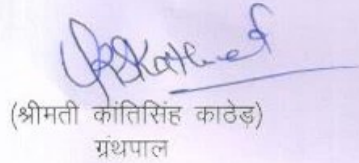 (श्रीमती कांतिसिंह काठेड़)
ग्रंथपाल